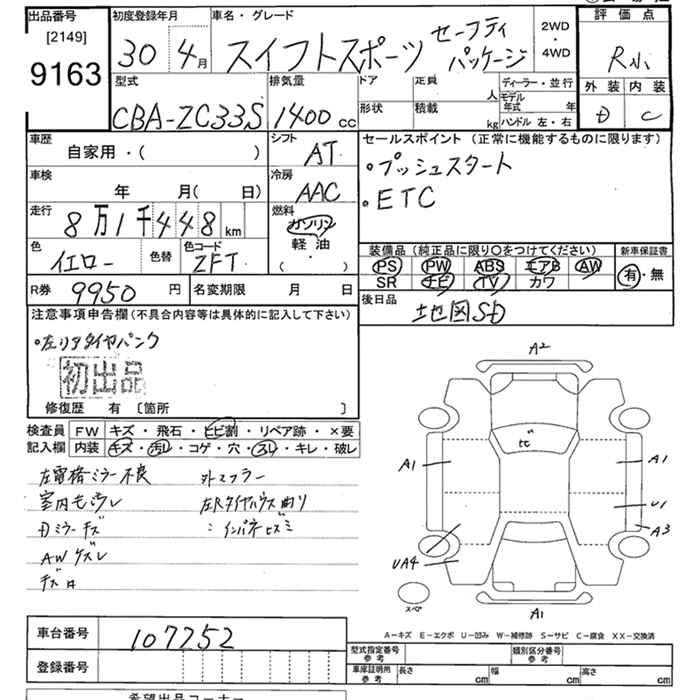 出品番号 初度登録年月 車名・グレード 評価点
[2149]
9163
30年 4月 スイフトスポーツ セーフティパッケージ
2WD・4WD
R小
外装 内装
D C
型式 排気量 ドア 定員 ディーラー・並行
CBA-ZC33S 1400cc 人 モデル年式 年
形状 積載 kg ハンドル 左・右
車歴 シフト セールスポイント（正常に機能するものに限ります）
自家用・( ) AT
・プッシュスタート
車検 冷房
年 月( 日) AAC
・ETC
走行 燃料
8万1千448km ガソリン
軽油
( ・ )
色 色替 色コード
イエロー ZFT
装備品（純正品に限り○をつけてください） 新車保証書
PS PW ABS エアB AW
SR ナビ TV カワ
有・無
R券 9950円 名変期限 月 日
後日品 地図SD
注意事項申告欄（不具合内容等は具体的に記入して下さい）
・左リアタイヤパンク
初出品
修復歴 有 〔箇所 〕
検査員記入欄 FW キズ・飛石・ヒビ割・リペア跡・×要
内装 キズ・汚レ・コゲ・穴・スレ・キレ・破レ
左電格ミラー不良 外マフラー
室内モウレ 左Rタイヤハウス曲り
Dミラーキズ :インパネヒズミ
AWケズレ
A2
ヒビ
A1 A1
U1
A3
UA4
スペア
A1
A-キズ E-エクボ U-凹み W-補修跡 S-サビ C-腐食 XX-交換済
車台番号 107252
登録番号
型式指定番号 参考 類別区分番号 参考
車庫証明用 参考 長さ cm 幅 cm 高さ cm
希望出品コーナー